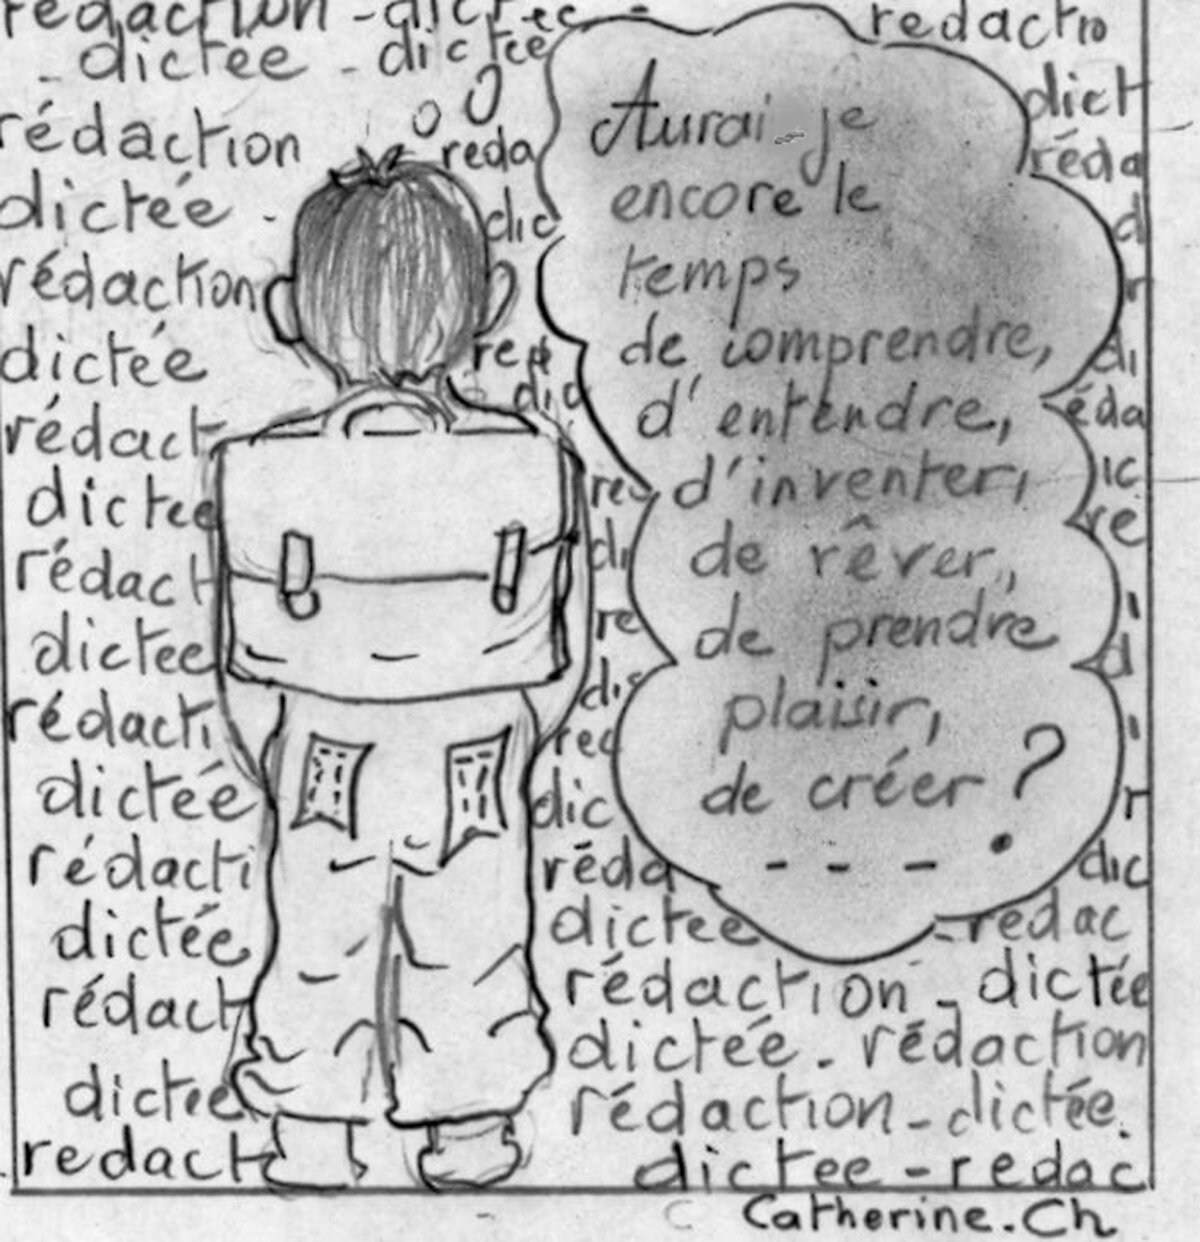 rédaction - dictée
redactio
- dictee - dictée
dict
rédaction
reda
réda
dictée -
dic
d
rédaction
r
dictée
red
di
did
rédact
éda
dictee
red
ic
re
rédact
di
dictee
re
d
rédacti
dic
red
dictée
dic
r
rédacti
réda
dic
dictée
dictee
- redac
rédact
rédaction - dictée
dictée - rédaction
dictée
rédaction - dictée.
redact
dictee - redac
Aurai-je
encore le
temps
de comprendre,
d'entendre,
d'inventer,
de rêver,,
de prendre
plaisir,
de créer ?
- - -
Catherine.Ch